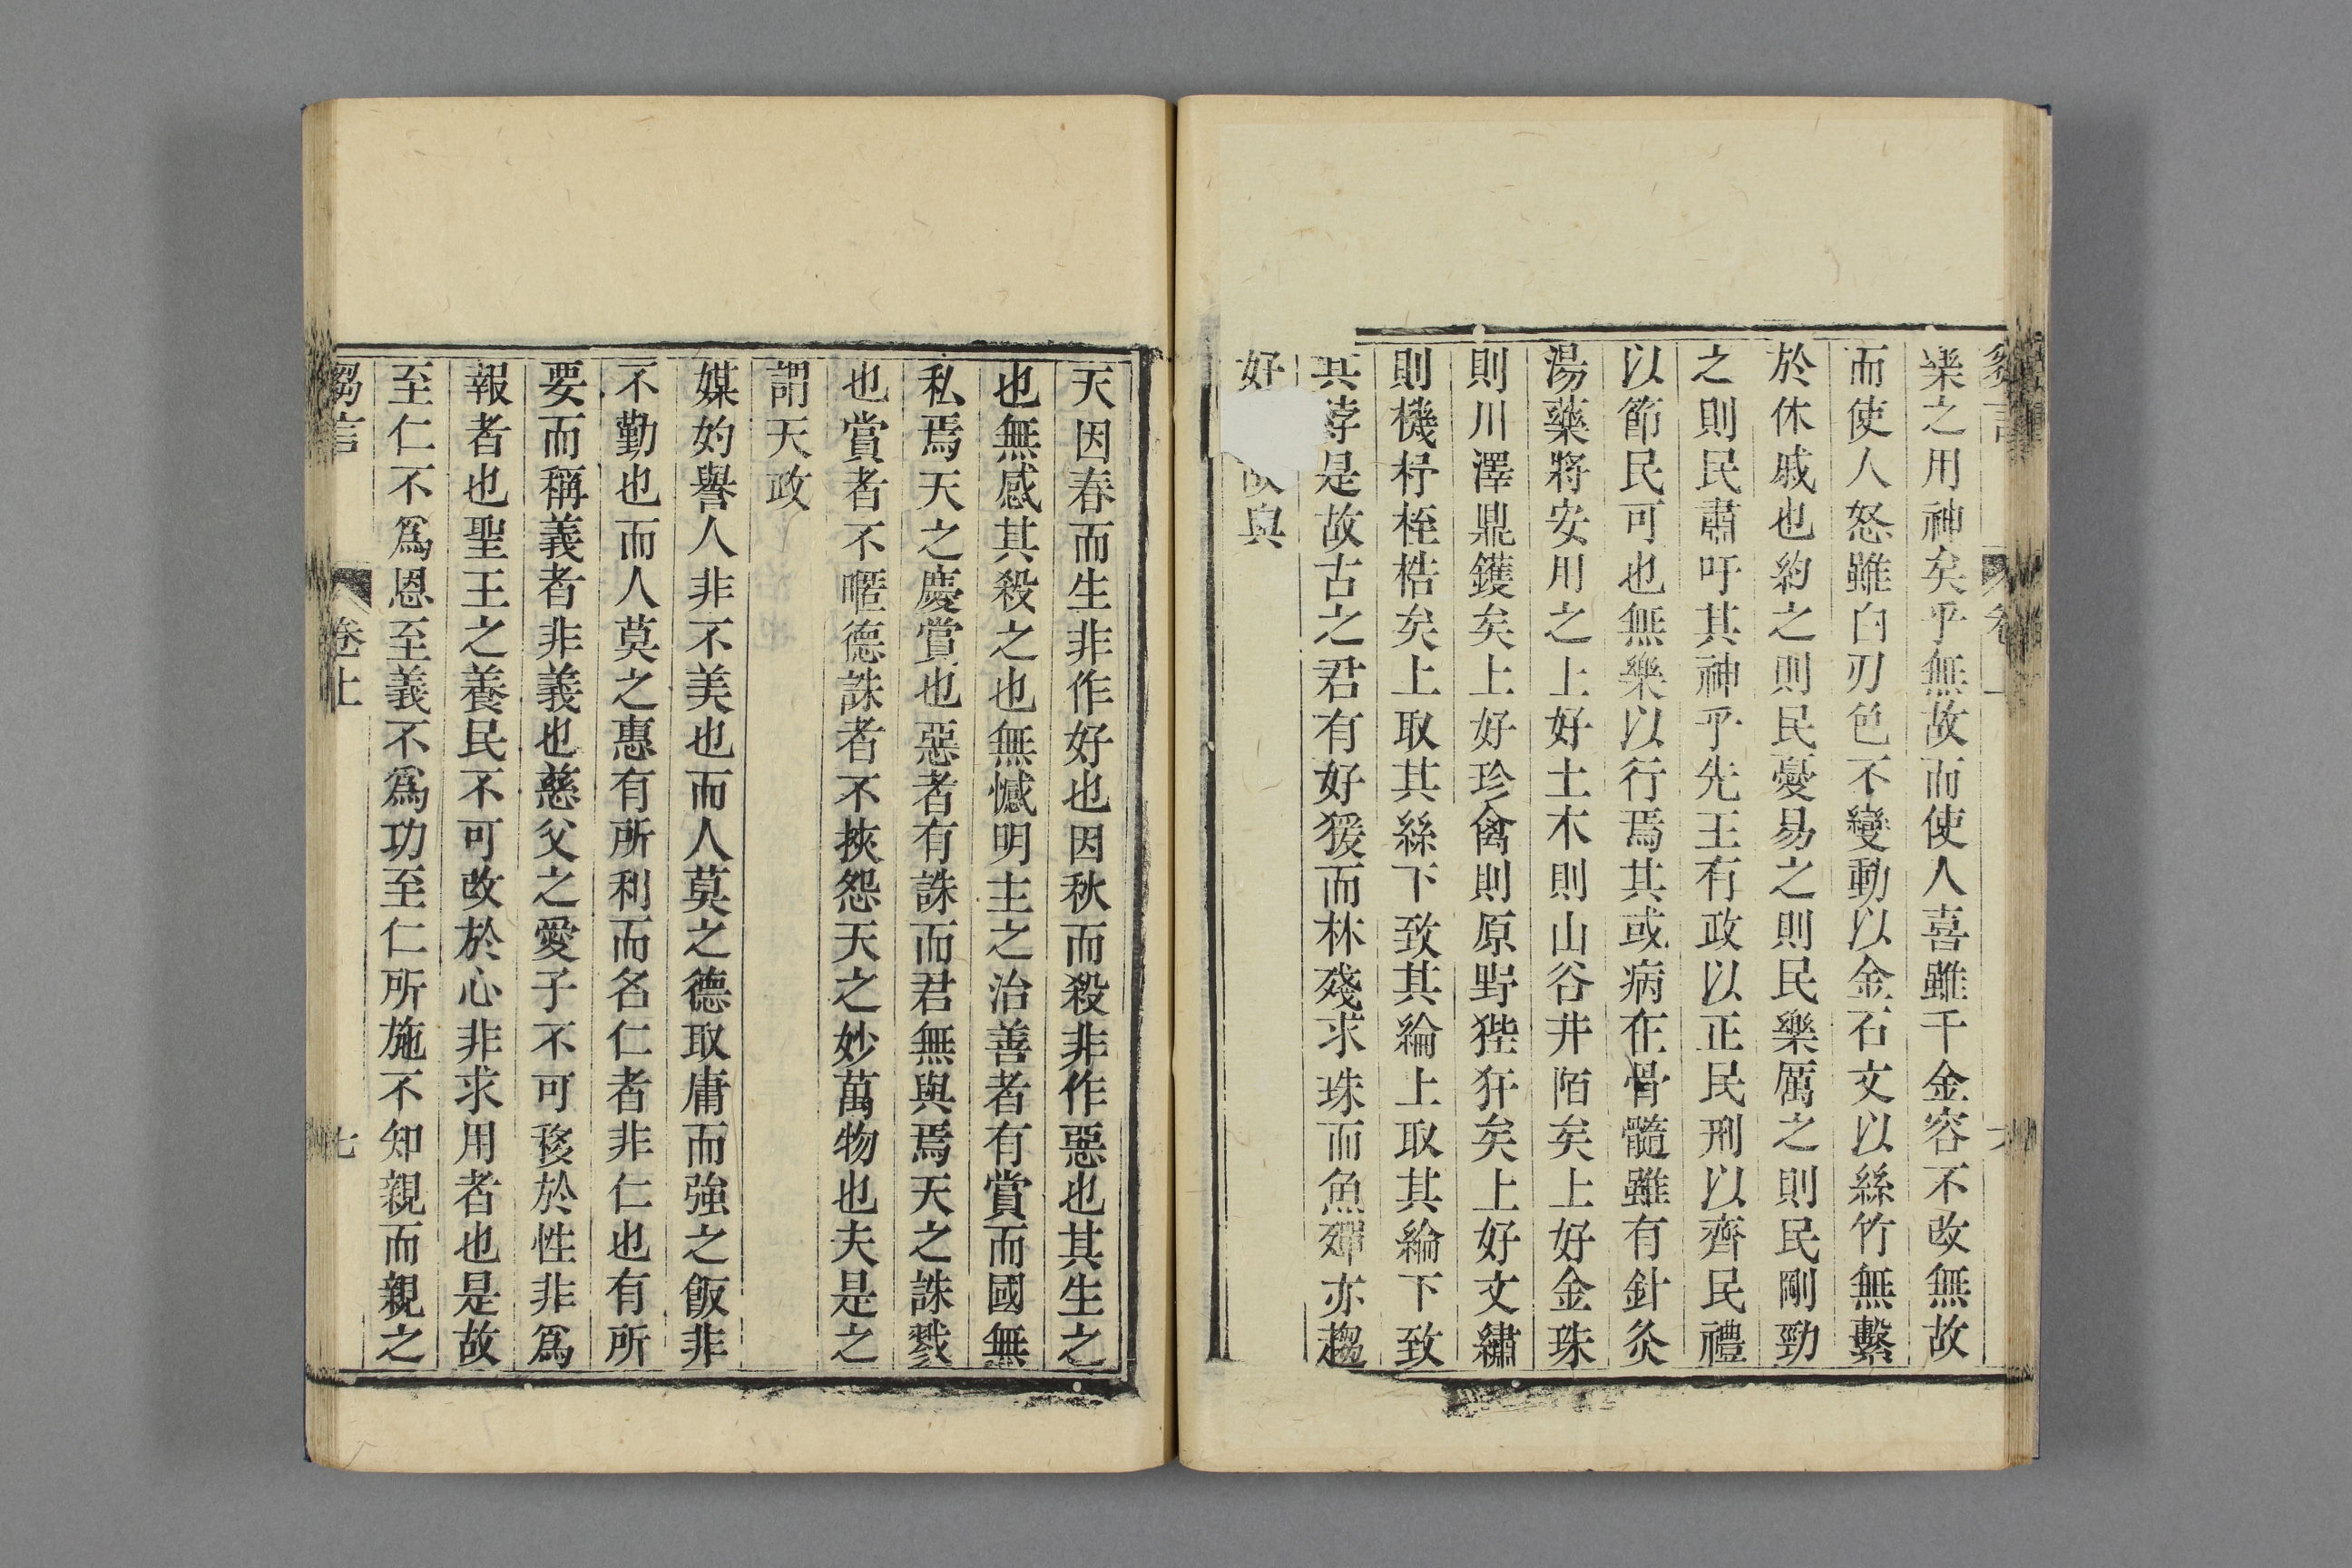 樂之用神矣乎無故而使人喜雖千金容不改無故
而使人怒雖白刃色不變動以金石文以絲竹無繫
於休戚也約之則民憂易之則民樂厲之則民剛勁
之則民肅吁其神乎先王有政以正民刑以齊民禮
以節民可也無樂以行焉其或病在骨髓雖有針灸
湯藥將安用之上好土木則山谷井陌矣上好金珠
則川澤鼎鑊矣上好珍禽則原野狴犴矣上好文繡
則機杼桎梏矣上取其絲下致其綸上取其綸下致
其悖是故古之君有好猨而林殘求珠而魚殫亦趨
好與
天因春而生非作好也因秋而殺非作惡也其生之
也無感其殺之也無憾明主之治善者有賞而國無
私焉天之慶賞也惡者有誅而君無與焉天之誅戮
也賞者不暱德誅者不挾怨天之妙萬物也夫是之
謂天政
媒妁譽人非不美也而人莫之德取庸而強之飯非
不勤也而人莫之惠有所利而名仁者非仁也有所
要而稱義者非義也慈父之愛子不可移於性非爲
報者也聖王之養民不可改於心非求用者也是故
至仁不爲恩至義不爲功至仁所施不知親而親之
芻言 卷上 七